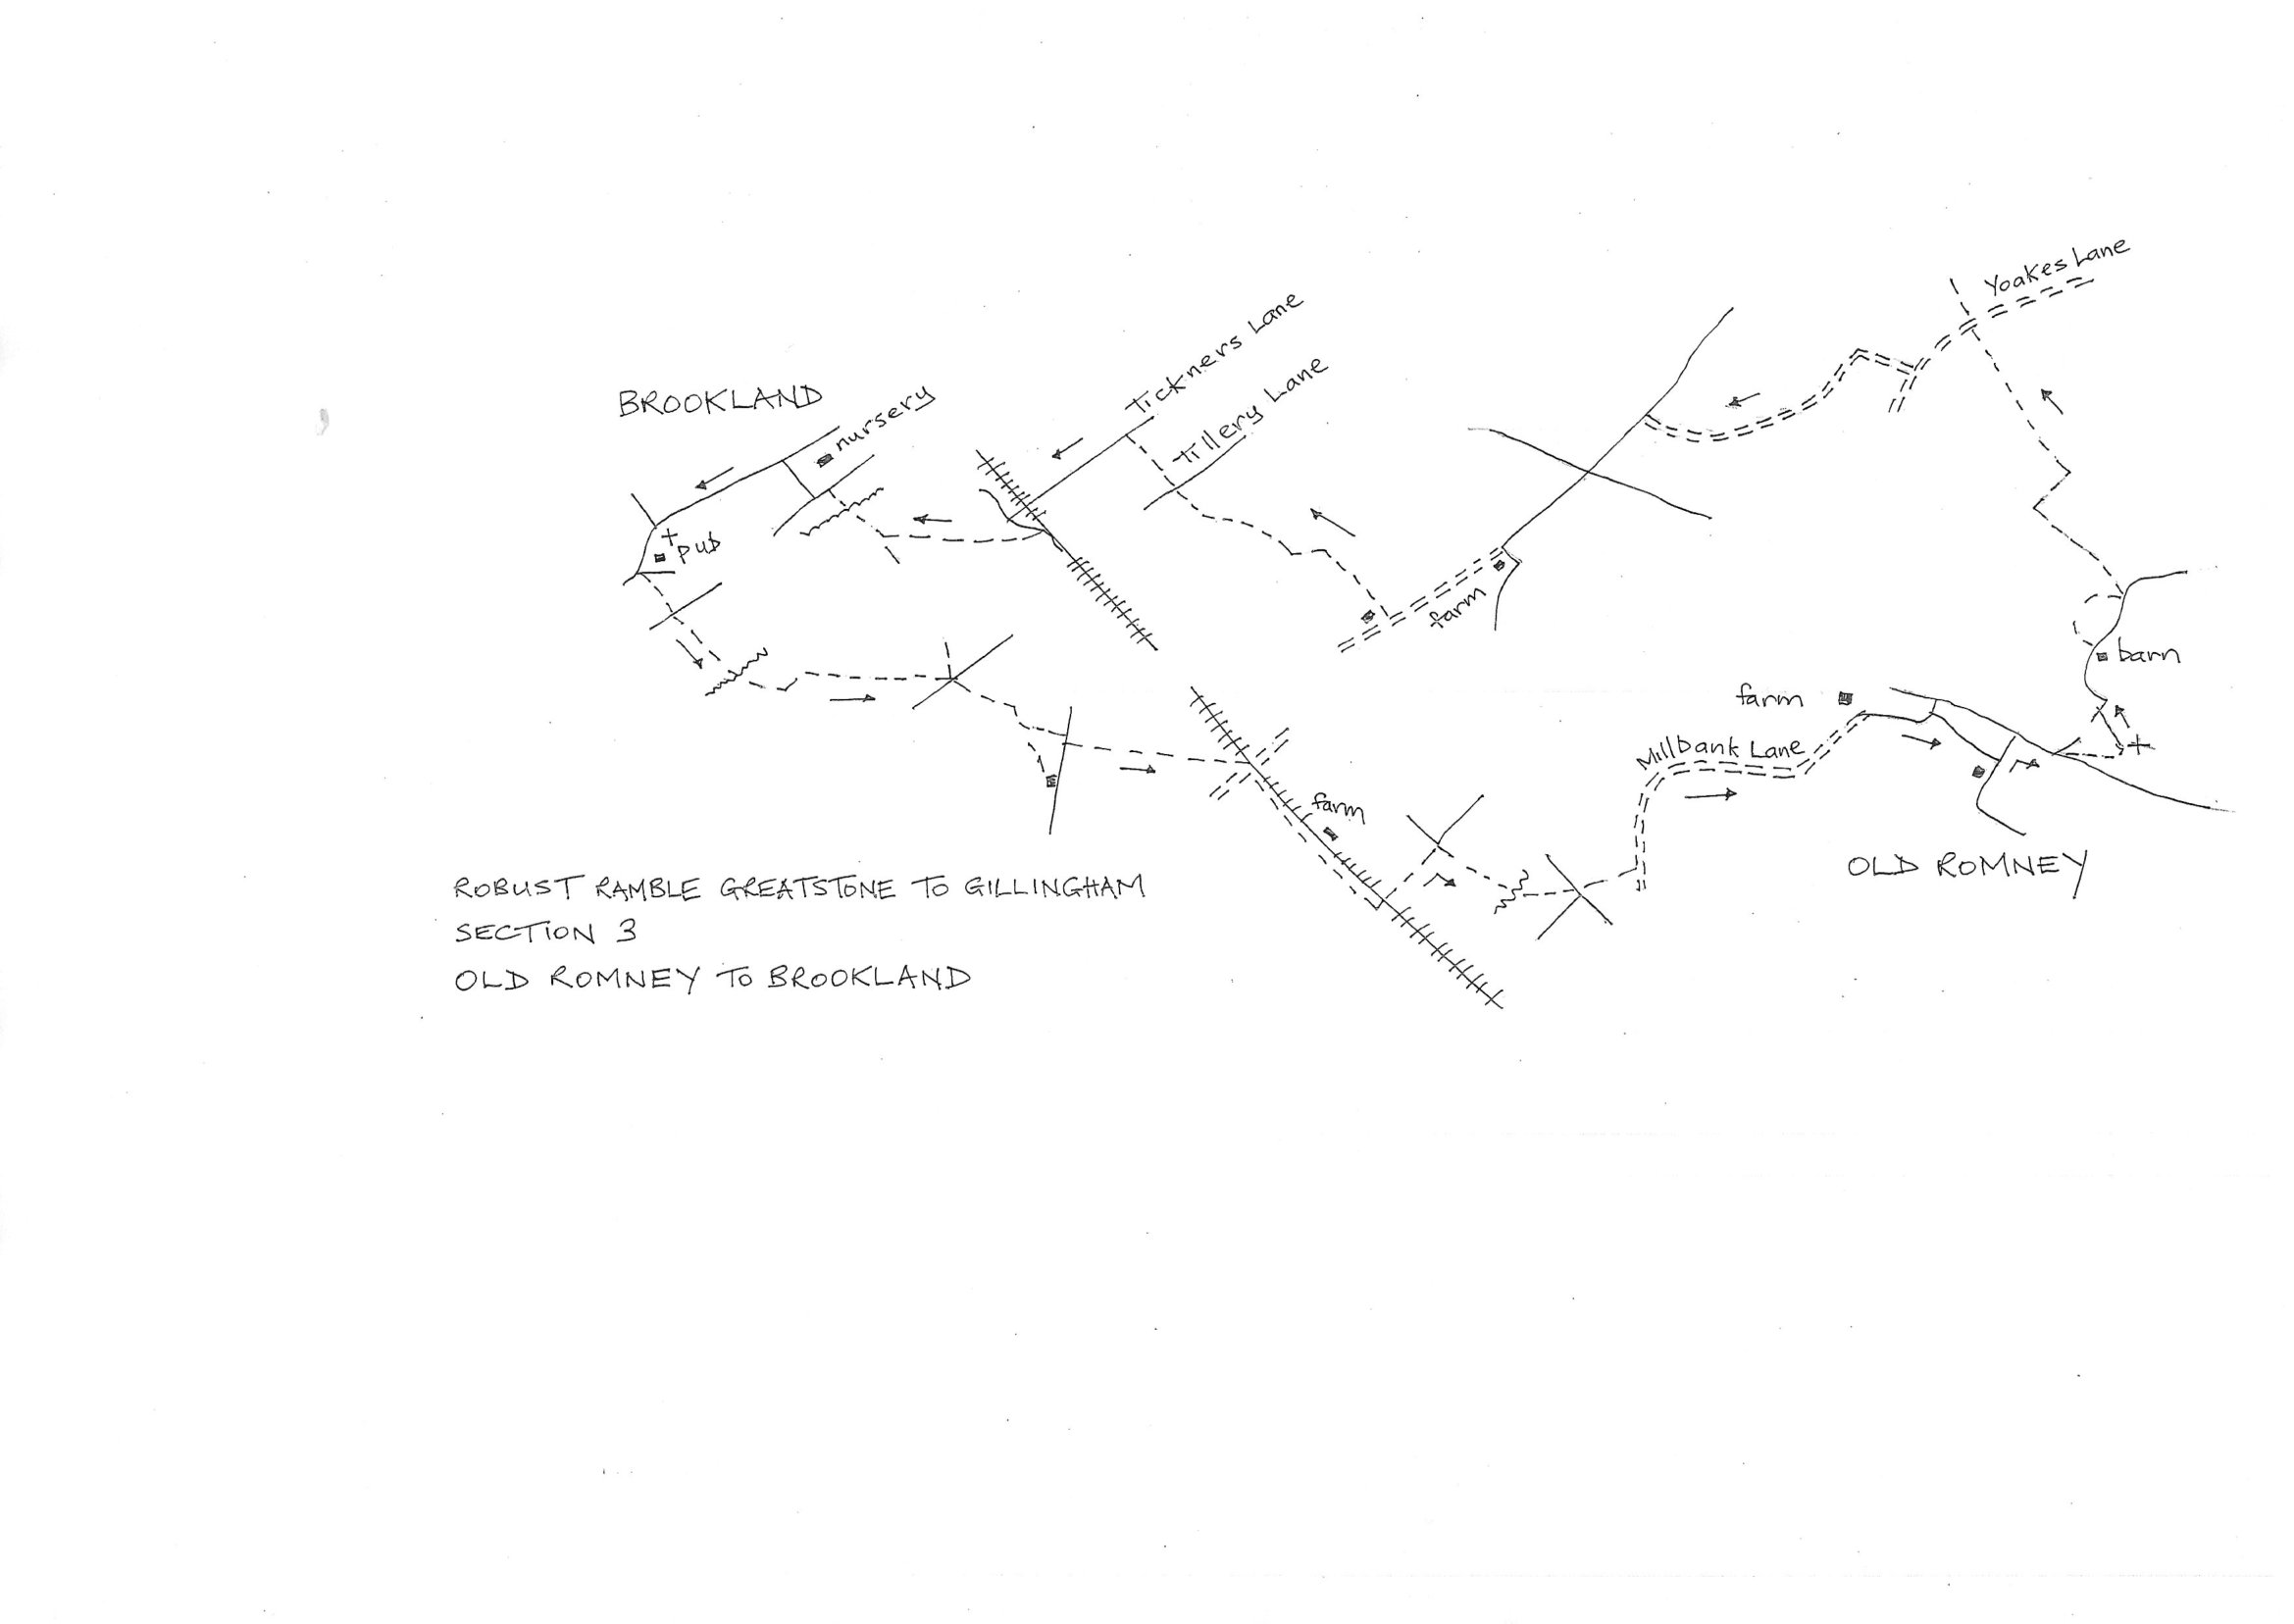 Yoakes Lane
Tickners Lane
Tillery Lane
BROOKLAND
nursery
pub
farm
barn
farm
Millbank Lane
farm
OLD ROMNEY
ROBUST RAMBLE GREATSTONE TO GILLINGHAM
SECTION 3
OLD ROMNEY TO BROOKLAND